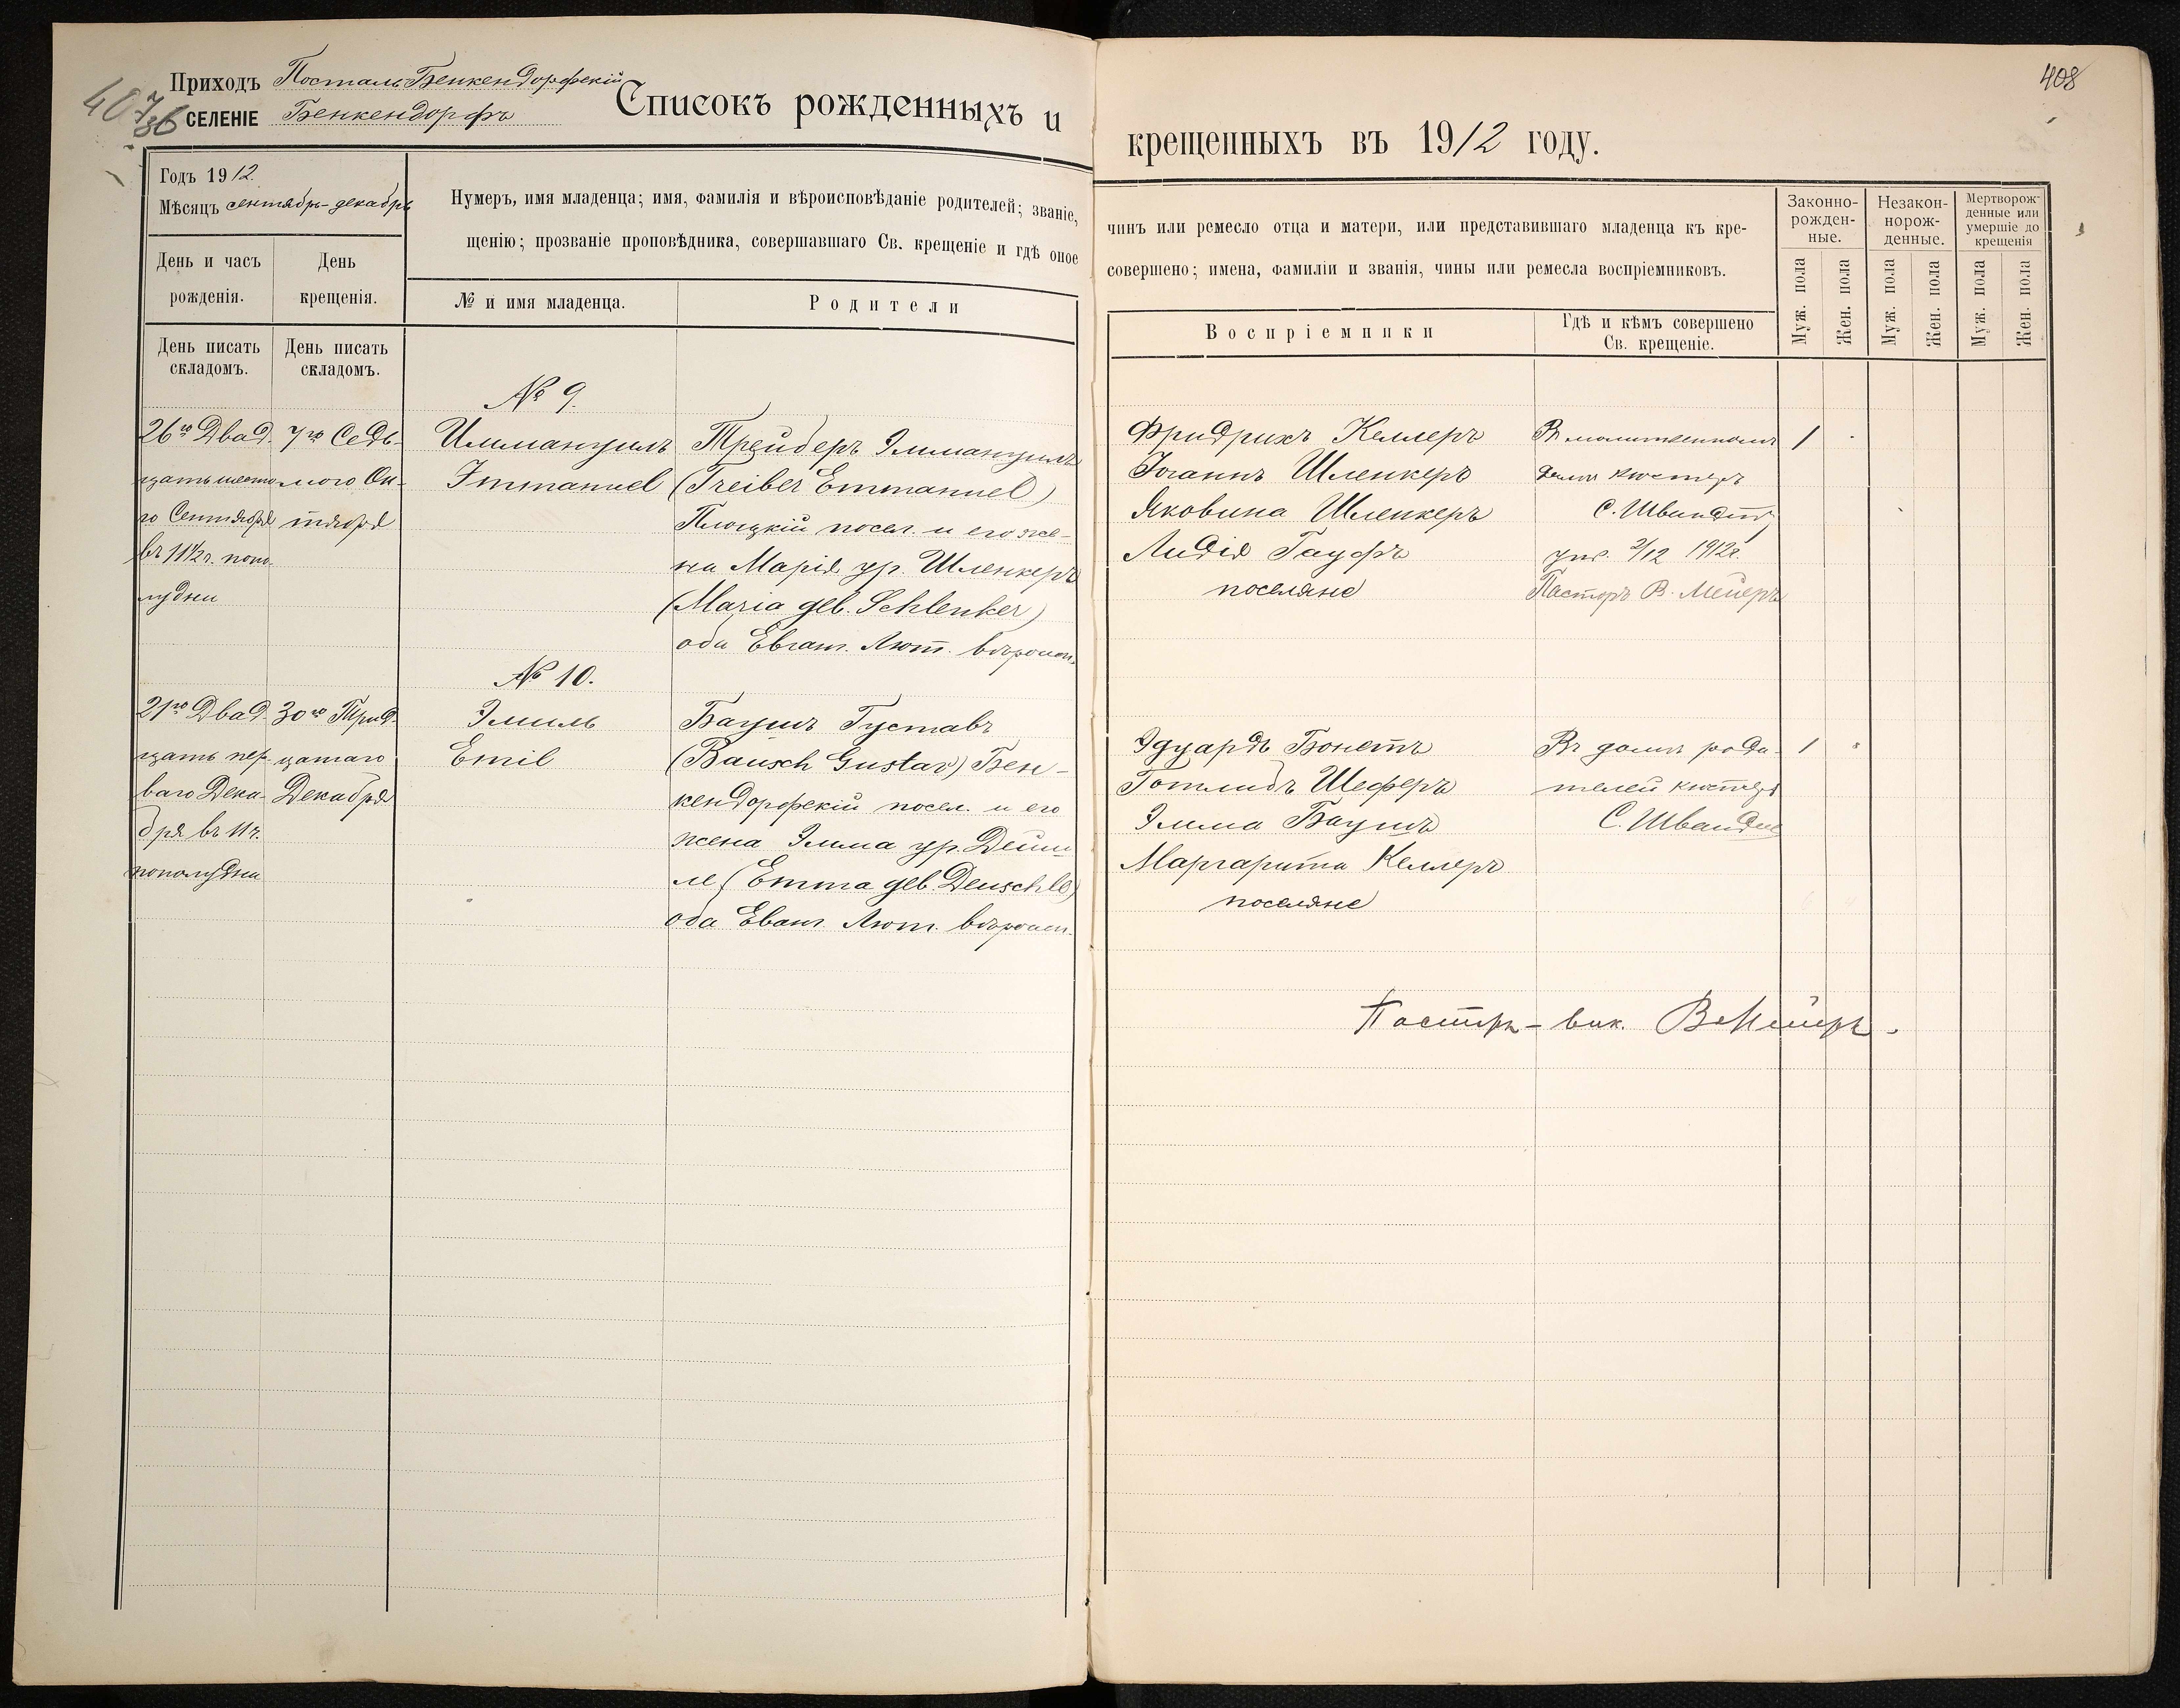 Приходъ Посталь Бенкендорфскій
СЕЛЕНІЕ Бенкендорфъ
Списокъ рожденныхъ и крещенныхъ въ 1912 году.
408
Годъ 1912.
Мѣсяцъ сентябрь-декабрь
Нумеръ, имя младенца; имя, фамилія и вѣроисповѣданіе родителей; званіе, чинъ или ремесло отца и матери, или представившаго младенца къ кре-
щенію; прозваніе проповѣдника, совершавшаго Св. крещеніе и гдѣ оное совершено; имена, фамиліи и званія, чины или ремесла воспріемниковъ.
День и часъ
рожденія.
День
крещенія.
№ и имя младенца.
Родители
Воспріемники
Гдѣ и кѣмъ совершено
Св. крещеніе.
Законно-
рожден-
ные.
Незакон-
норож-
денные.
Мертворож-
денные или
умершіе до
крещенія
Муж. пола
Жен. пола
Муж. пола
Жен. пола
Муж. пола
Жен. пола
День писать
складомъ.
День писать
складомъ.
№ 9.
26го Двад-
цать шесто-
го Сентября
въ 11½ ч. попо-
лудни
7го Седь-
мого Ок-
тября
Иммануилъ
Immanuel
Трейберъ Эммануилъ
(Treiber Emmanuel)
Плоцкій посел. и его же-
на Марія ур. Шленкеръ
(Maria geb. Schlenker)
оба Еванг. Лют. вѣроисп.
Фридрихъ Келлеръ
Іоганнъ Шленкеръ
Яковина Шленкеръ
Лидія Гауфъ
поселяне
Въ молитвенномъ
домѣ кюстеръ
С. Швандтъ
2/12 1912г.
Пасторъ В. Мейеръ
1
№ 10.
21го Двад-
цать пер-
ваго Дека-
бря въ 11 ч.
пополудни
30го Трид-
цатаго
Декабря
Эмиль
Emil
Баушъ Густавъ
(Bausch Gustav) Бен-
кендорфскій посел. и его
жена Эмма ур. Дейш-
ле (Emma geb. Deuschle)
оба Еванг. Лют. вѣроисп.
Эдуардъ Бонетъ
Готлибъ Шеферъ
Эмма Баушъ
Маргарита Келлеръ
поселяне
Въ домѣ роди-
телей кюстеръ
С. Швандтъ
1
Пасторъ-вик. В. Мейеръ.